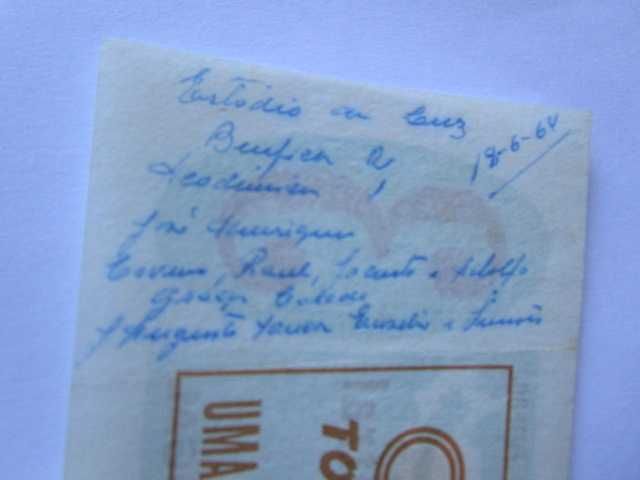 Estádio da Luz
18-6-64
Benfica 2
Academica 1
José Henrique
Cavem, Raul, Jacinto e Adolfo
J Augusto Eusébio e Simões
UMA
TO